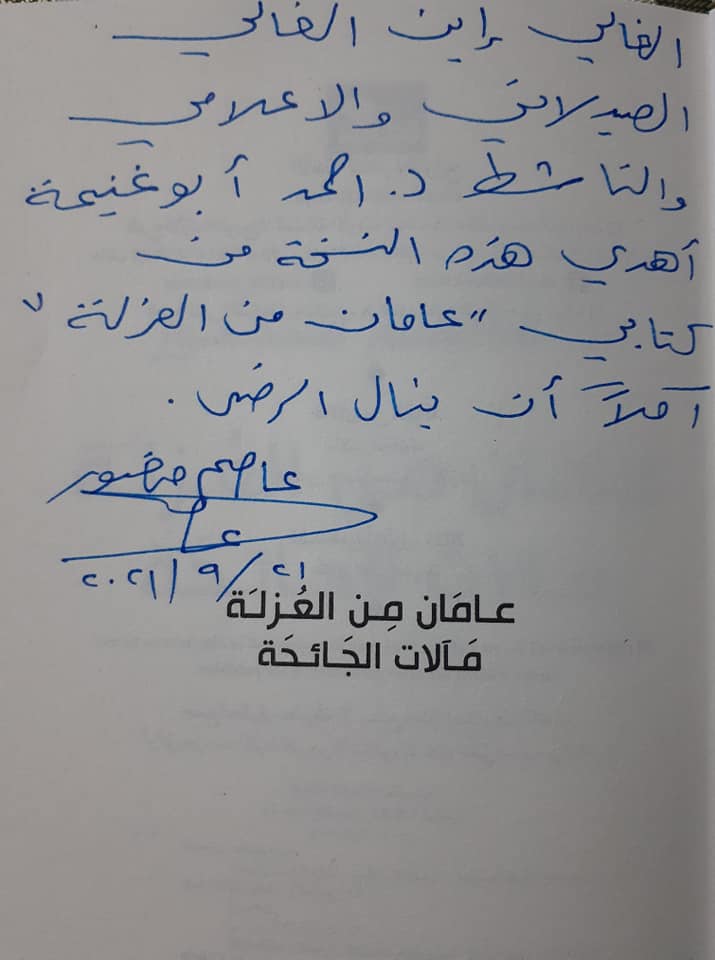 الغالي إبن الغالي
الصيدلاني والاعلامي
والناشط د. احمد أبوغنيمة
أهدي هذه النسخة من
كتابي "عامان من العزلة"
آملاً أن ينال الرضى.
عاصم منصور
٢٠٢١/٩/٢١
عامَان مِن العُزلَة
مَآلات الجَائحَة